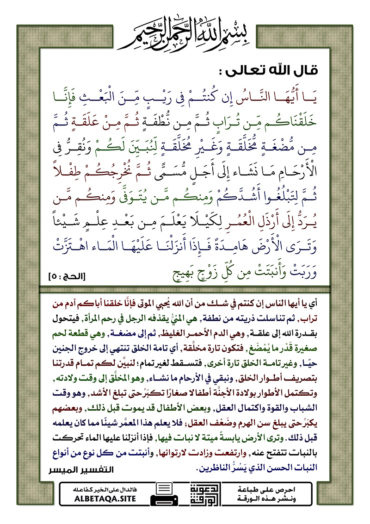 بِسْمِ اللَّهِ الرَّحْمَنِ الرَّحِيمِ
قال الله تعالى :
يَـا أَيُّهَـا النَّـاسُ إِن كُنتُـمْ فِي رَيْـبٍ مِّـنَ الْبَعْـثِ فَإِنَّـا
خَلَقْنَاكُـم مِّن تُـرَابٍ ثُـمَّ مِـن نُّطْفَـةٍ ثُمَّ مِنْ عَلَقَـةٍ ثُـمَّ
مِـن مُّضْغَـةٍ مُّخَلَّقَـةٍ وَغَيْـرِ مُخَلَّقَـةٍ لِّنُبَيِّـنَ لَكُـمْ وَنُقِـرُّ فِي
الْأَرْحَـامِ مَـا نَشَـاء إِلَى أَجَـلٍ مُّسَـمًّى ثُـمَّ نُخْرِجُكُـمْ طِفْـلاً
ثُـمَّ لِتَبْلُغُـوا أَشُـدَّكُمْ وَمِنكُـم مَّـن يُتَـوَفَّى وَمِنكُـم مَّـن
يُـرَدُّ إِلَى أَرْذَلِ الْعُمُـرِ لِكَيْـلَا يَعْلَـمَ مِـن بَعْـدِ عِلْـمٍ شَـيْئاً
وَتَـرَى الْأَرْضَ هَامِـدَةً فَـإِذَا أَنزَلْنَـا عَلَيْهَـا الْمَـاء اهْتَـزَّتْ
وَرَبَتْ وَأَنبَتَتْ مِن كُلِّ زَوْجٍ بَهِيجٍ [الحج : ٥]
أي يا أيها الناس إن كنتم في شـك من أن الله يُحيي الموتى فإنَّا خلقنا أباكم آدم من
تراب، ثم تناسلت ذريته من نطفة، هي المنيُّ يقذفه الرجل في رحم المرأة، فيتحول
بقـدرة الله إلى علقـة، وهي الدم الأحمـر الغليظ، ثم إلى مضغـة، وهي قطعة لحم
صغيرة قَدْر ما يُمْضَغ، فتكون تارة مخلَّقة، أي تامة الخلق تنتهي إلى خروج الجنين
حيًّـا، وغير تامـة الخلق تارة أخرى، فتسـقط لغير تمام؛ لنبيِّن لكـم تمـام قدرتنا
بتصريف أطـوار الخلق، ونبقي في الأرحام ما نشـاء، وهو المخلَّق إلى وقت ولادته،
وتكتمل الأطوار بولادة الأجنَّة أطفالا صغارًا تكبَرُ حتى تبلغ الأشد، وهو وقت
الشباب والقوة واكتمال العقل، وبعض الأطفال قد يموت قبل ذلك، وبعضهم
يكبَرُ حتى يبلغ سن الهرم وضَعْف العقل؛ فلا يعلم هذا المعمَّر شيئًا مما كان يعلمه
قبل ذلك. وترى الأرض يابسةً ميتة لا نبات فيها، فإذا أنزلنا عليها الماء تحركت
بالنبات تتفتح عنه، وارتفعت وزادت لارتوائها، وأنبتت من كل نوع من أنواع
النبات الحسن الذي يَسُرُّ الناظرين. التفسير الميسر
احرص على طباعة
ونشر هذه الورقة
الدعوية
الورقة
فالدال على الخير كفاعله
ALBETAQA.SITE